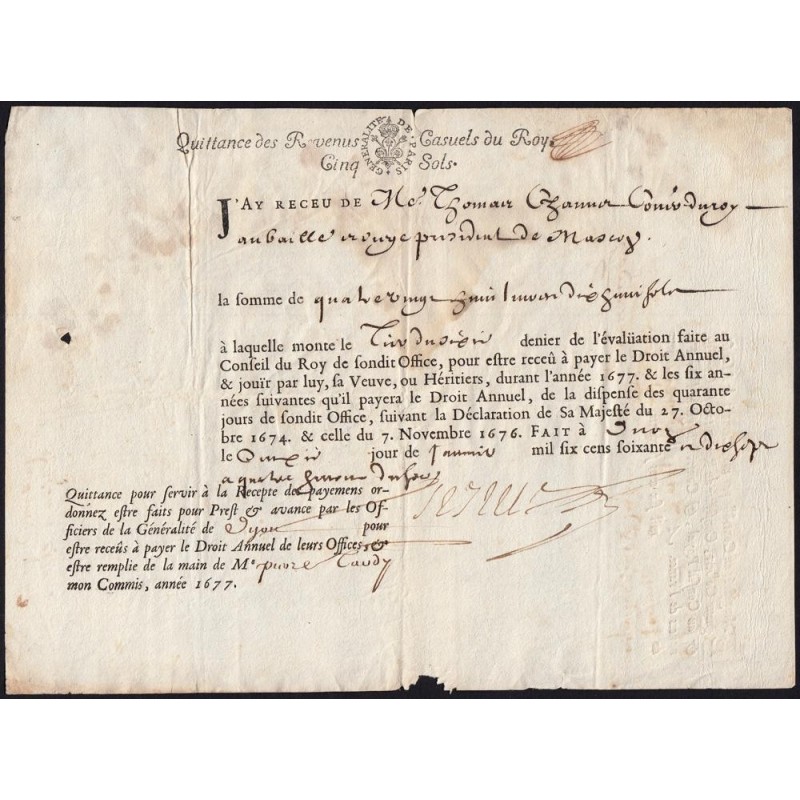 Quittance des Revenus Casuels du Roy.
Cinq Sols.
GENERALITE DE PARIS
J'AY RECEU DE Me. Thomas
president de Mascon.
la somme de quatre vingt huit livres dix huit sols
à laquelle monte le Tiers du denier de l'évalüation faite au
Conseil du Roy de sondit Office, pour estre receû à payer le Droit Annuel,
& jouïr par luy, sa Veuve, ou Héritiers, durant l'année 1677. & les six an-
nées suivantes qu'il payera le Droit Annuel, de la dispense des quarante
jours de sondit Office, suivant la Déclaration de Sa Majesté du 27. Octo-
bre 1674. & celle du 7. Novembre 1676. FAIT à
le jour de Janvier mil six cens soixante et dix sept
Quittance pour servir à la Recepte des payemens or-
donnez estre faits pour Prest & avance par les Of-
ficiers de la Généralité de Dijon pour
estre receûs à payer le Droit Annuel de leurs Offices; &
estre remplie de la main de Me pierre
mon Commis, année 1677.